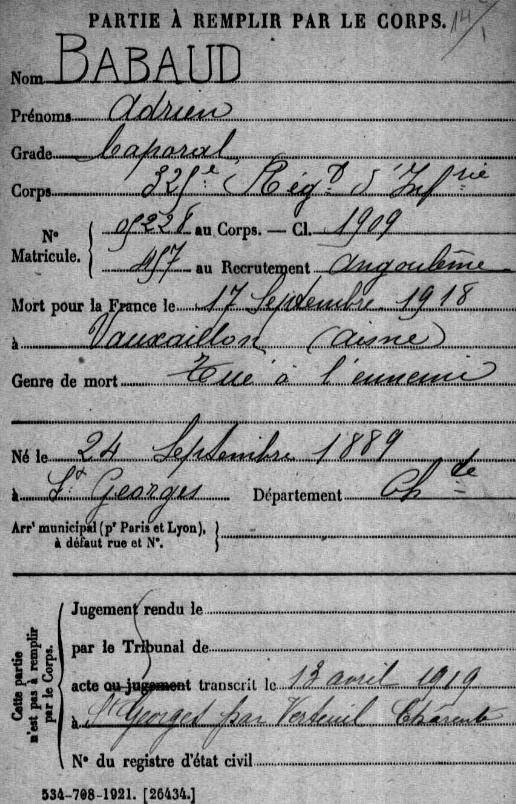 PARTIE À REMPLIR PAR LE CORPS.
Nom BABAUD
Prénoms Adrien
Grade Caporal
Corps 325e Régt d'Infrie
N° Matricule. 05228 au Corps. — Cl. 1909
957 au Recrutement Angoulême
Mort pour la France le 17 Septembre 1918
à Vauxaillon (Aisne)
Genre de mort Tué à l'ennemi
Né le 24 Septembre 1889
à St Georges Département Chte
Arrt municipal (pr Paris et Lyon),
à défaut rue et N°.
Cette partie n'est pas à remplir par le Corps.
Jugement rendu le
par le Tribunal de
acte ou jugement transcrit le 13 avril 1919
à St Georges par Verteuil Charente
N° du registre d'état civil
534-708-1921. [26434.]